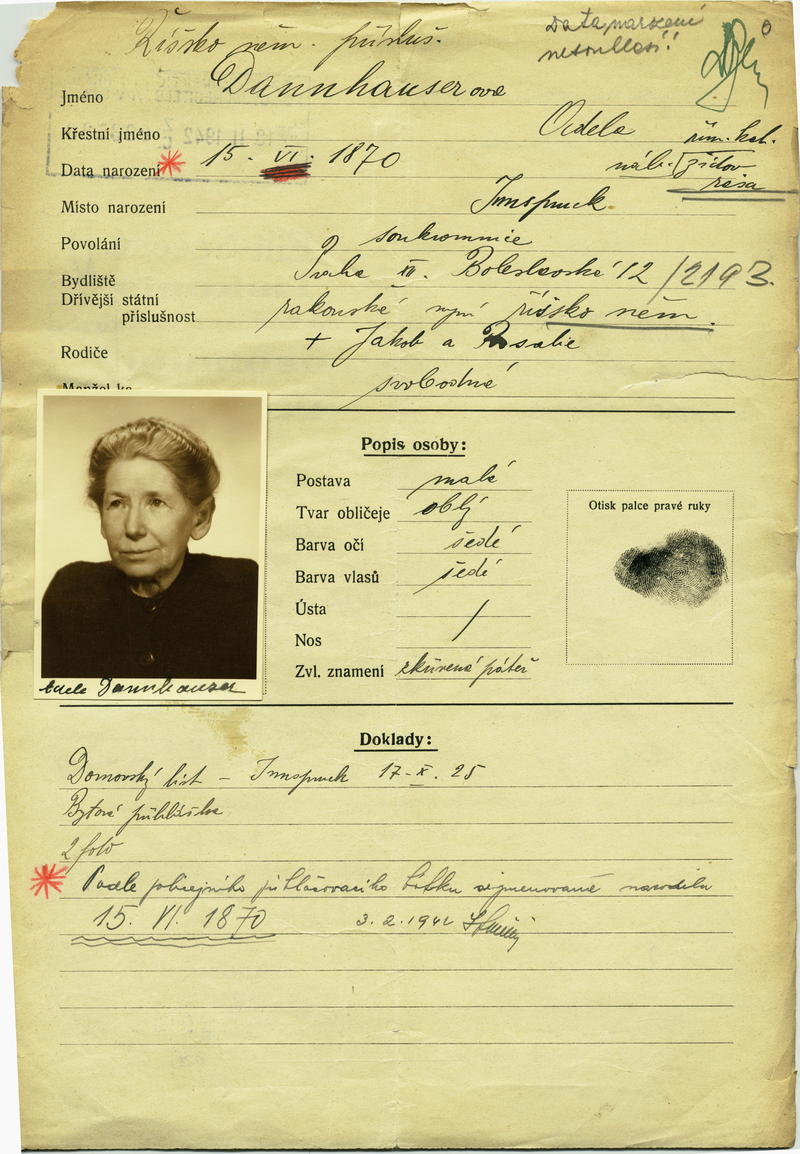 Říšsko něm. přísluš.
Data narození
nesouhlasí!
Jméno Dannhauserova
Křestní jméno Adela
řím. kat.
náb. židov
rasa
Data narození * 15. VI. 1870
Místo narození Innspruck
Povolání soukromnice
Bydliště Praha XII. Boleslavská 12/2193.
Dřívější státní
příslušnost rakouské nyní říšsko něm.
Rodiče + Jakob a Rosalie
Manžel ka svobodná
Popis osoby:
Postava malá
Tvar obličeje oblý
Barva očí šedé
Barva vlasů šedé
Ústa /
Nos
Zvl. znamení zkřivená páteř
Otisk palce pravé ruky
Adele Dannhauser
Doklady:
Domovský list – Innspruck 17.X.25
Bytová přihláška
2 foto
* Podle policejního přihlašovacího lístku jmenovaná narozena
15. VI. 1870 3.2.1942